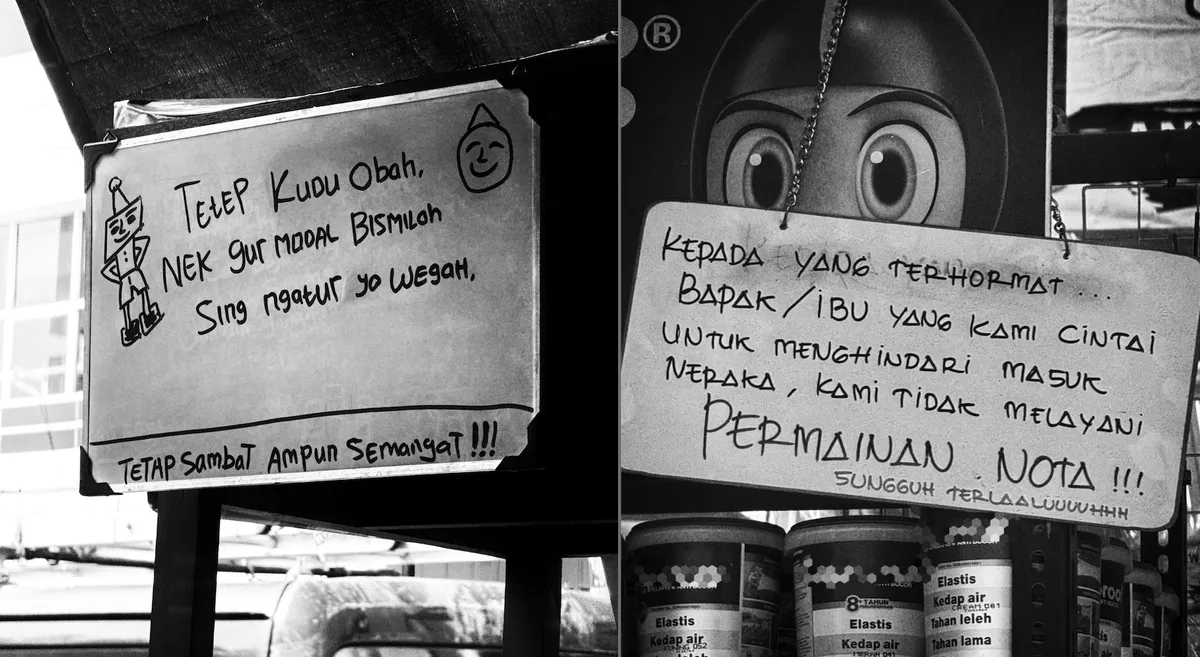 TETEP KUDU Obah,
NEK gur MODAL BISMILah
Sing ngatur yo WEgaH,
TETAP SambaT AmPun SEmangaT !!!
®
KEPADA YANG TERHORMAT ...
BAPAK / IBU YANG KAMI CINTAI
UNTUK MENGHINDARI MASUK
NERAKA, KAMI TIDAK MELAYANI
PERMAINAN NOTA !!!
SUNGGUH TERLAALUUUUHHH
Elastis
Kedap air
KUNING 052
8+ TAHUN
Elastis
Kedap air
MERAH 041
Elastis
Kedap air
CREAM 081
Tahan leleh
Tahan lama